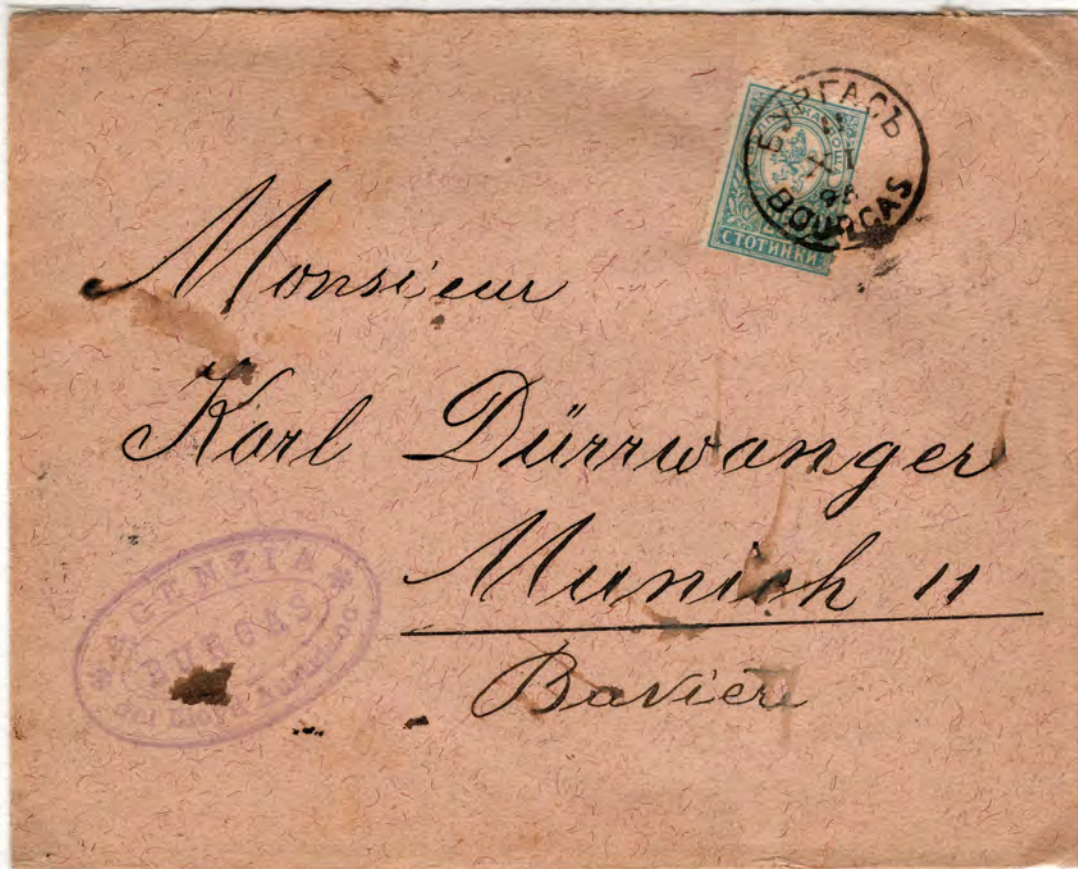 БУРГАСЪ
XI
BOURGAS
СТОТИНКИ
Monsieur
Karl Dürrwanger
Munich 11
Bavière
AGENZIA
BURGAS
del Lloyd Austriaco